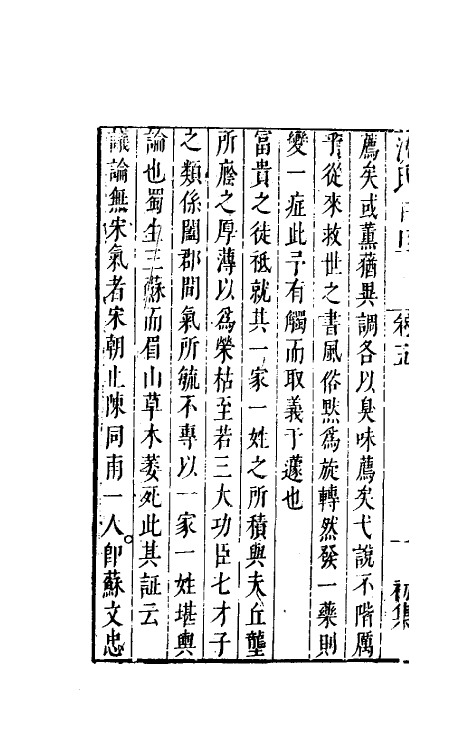 薦矣或薰蕕異調各以臭味薦矣弋說不階厲
乎從來救世之書風俗默為旋轉然發一藥則
變一症此予有觸而取義于蘧也
富貴之徒祗就其一家一姓之所積與夫丘壟
所廕之厚薄以為榮枯至若三大功臣七才子
之類係闔郡間氣所毓不專以一家一姓堪輿
論也蜀生三蘇而眉山草木萎死此其証云
議論無宋氣者宋朝止陳同甫一人卽蘇文忠